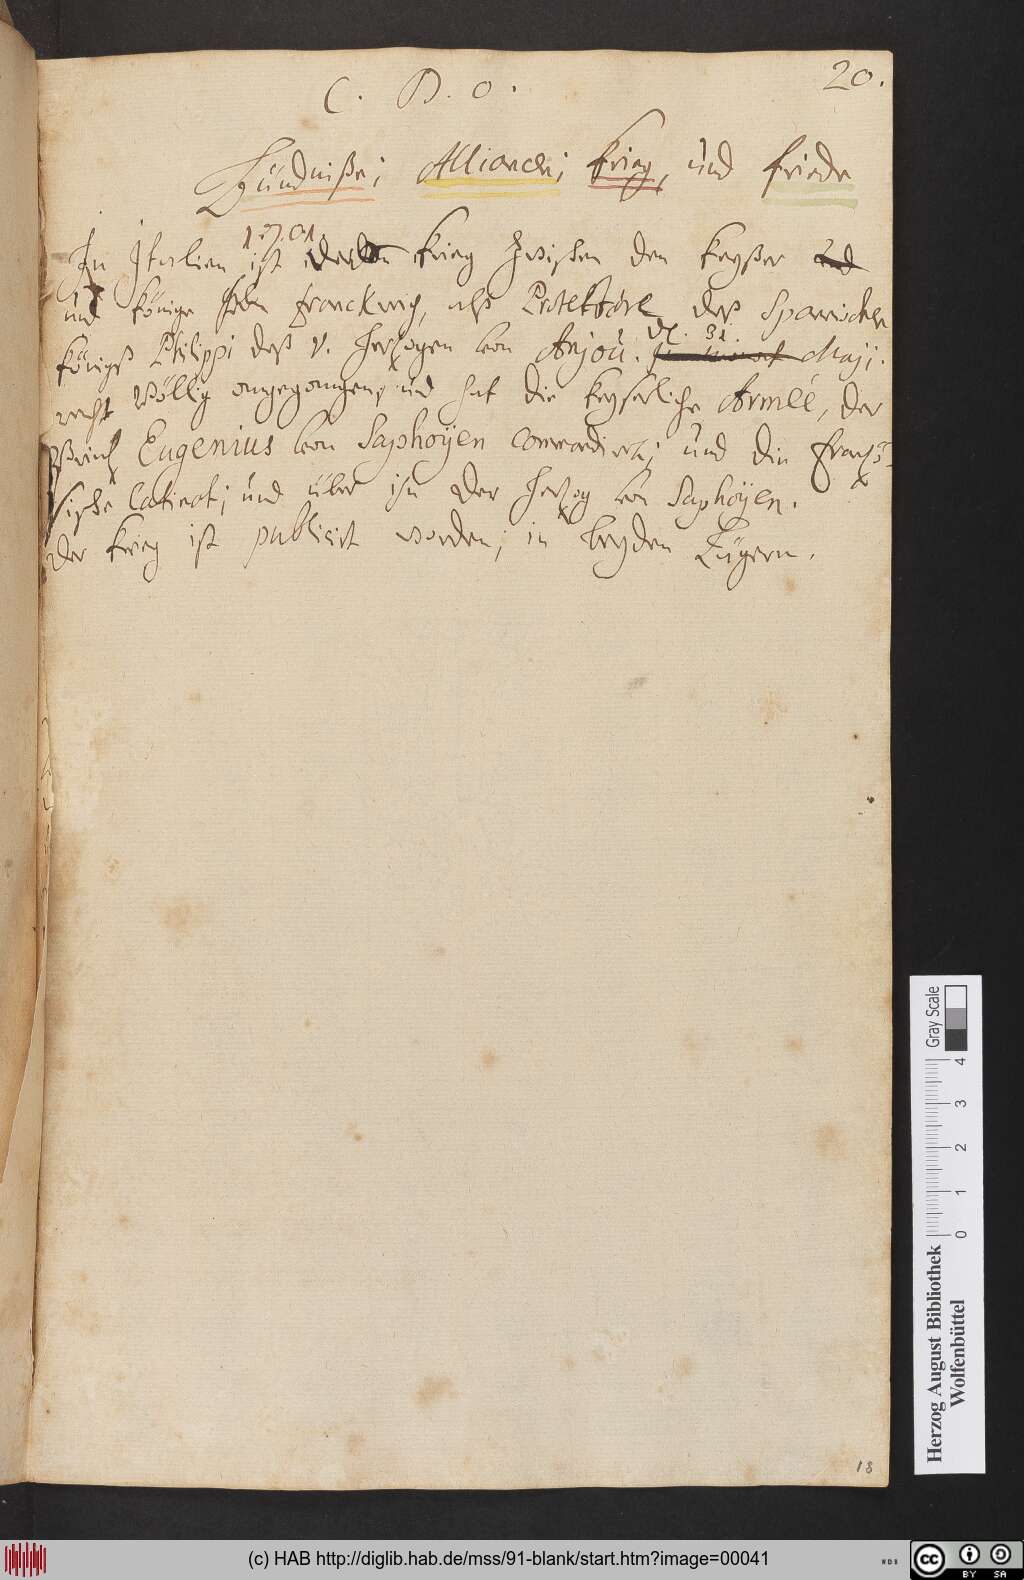 20.
C. D. O.
Bündniße; Alliancen; Krieg, und friede
1701.
In Italien ist der Krieg zwischen den Keyßer und
und Könige franckreich, alß Protektore deß Spanischen
Königß Philippi deß V. Hertzogen von Anjou. d. 31. Maji.
recht völlig angegangen, und hat die Keyserliche Armeé, der
Printz Eugenius von Saphoÿen commandirt; und die frantzö-
sische Catinat; und über ihn der Hertzog von Saphoÿen.
der Krieg ist publicirt worden, in beyden Lägern.
18
Herzog August Bibliothek
Wolfenbüttel
0 1 2 3 4
Gray Scale
(c) HAB http://diglib.hab.de/mss/91-blank/start.htm?image=00041
WDB
cc BY SA